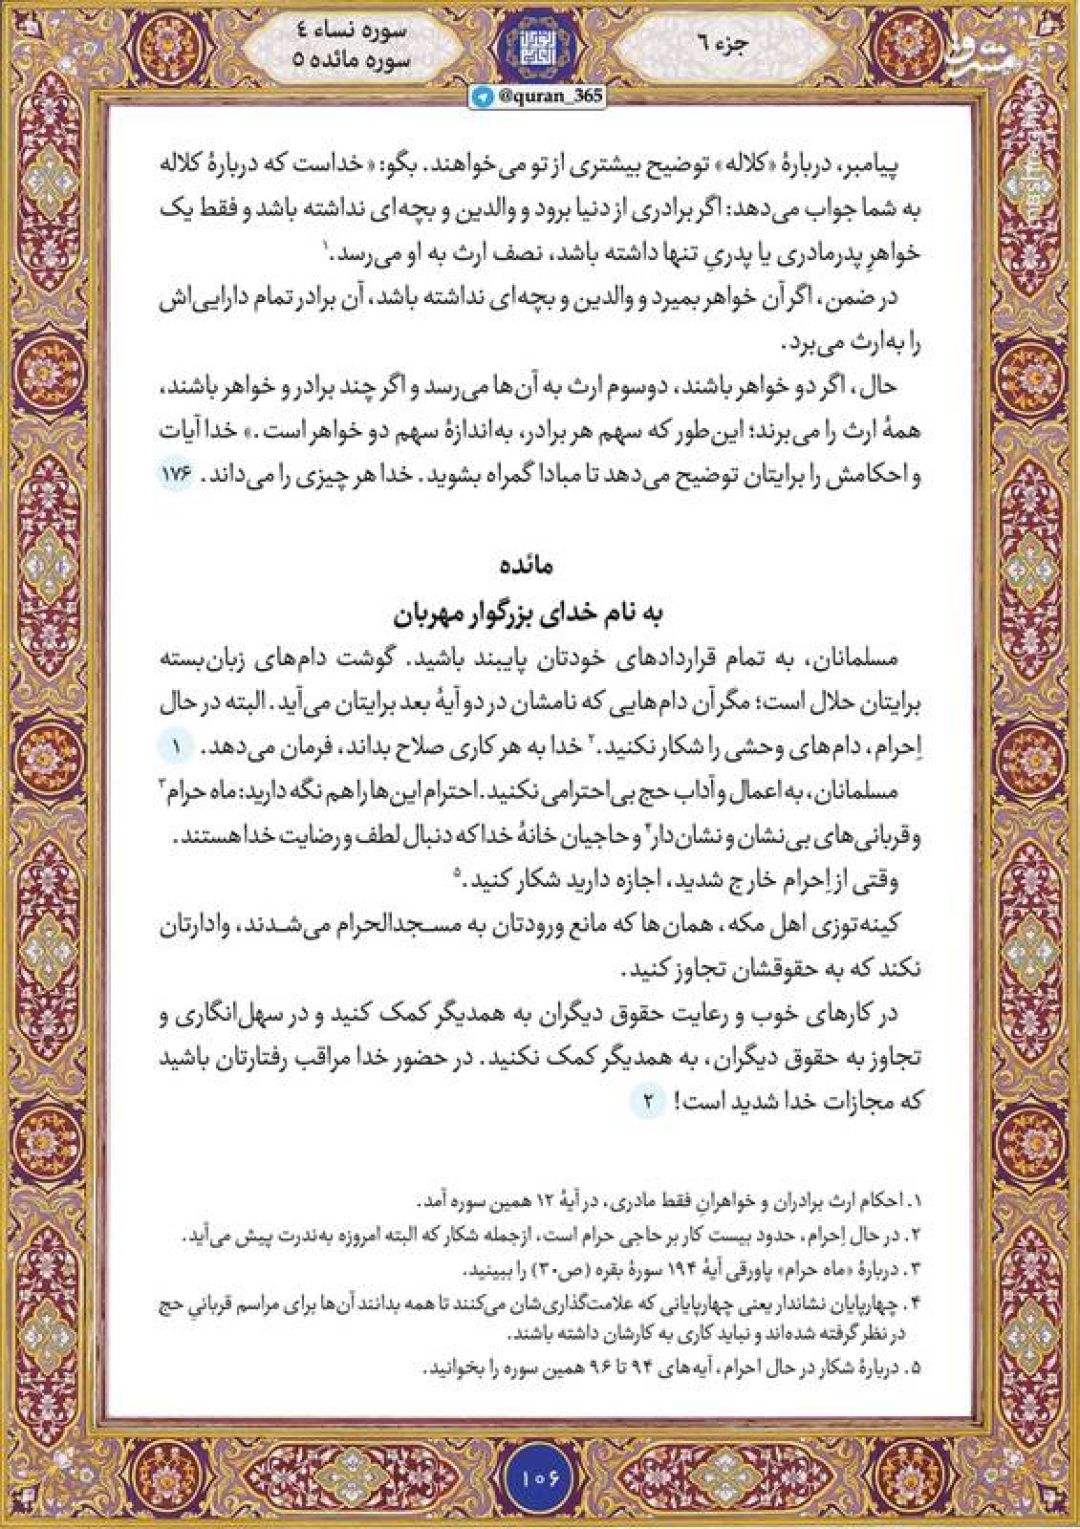 جزء ۶
سوره نساء ٤
سوره مائده ۵
مشرق
mashreghnews.ir
@quran_365
پیامبر، دربارهٔ «کلاله» توضیح بیشتری از تو می‌خواهند. بگو: «خداست که دربارهٔ کلاله
به شما جواب می‌دهد: اگر برادری از دنیا برود و والدین و بچه‌ای نداشته باشد و فقط یک
خواهرِ پدرمادری یا پدریِ تنها داشته باشد، نصف ارث به او می‌رسد.۱
در ضمن، اگر آن خواهر بمیرد و والدین و بچه‌ای نداشته باشد، آن برادر تمام دارایی‌اش
را به‌ارث می‌برد.
حال، اگر دو خواهر باشند، دوسوم ارث به آن‌ها می‌رسد و اگر چند برادر و خواهر باشند،
همهٔ ارث را می‌برند؛ این‌طور که سهم هر برادر، به‌اندازهٔ سهم دو خواهر است.» خدا آیات
و احکامش را برایتان توضیح می‌دهد تا مبادا گمراه بشوید. خدا هر چیزی را می‌داند. ۱۷۶
مائده
به نام خدای بزرگوار مهربان
مسلمانان، به تمام قراردادهای خودتان پایبند باشید. گوشت دام‌های زبان‌بسته
برایتان حلال است؛ مگر آن دام‌هایی که نامشان در دو آیهٔ بعد برایتان می‌آید. البته در حال
اِحرام، دام‌های وحشی را شکار نکنید.۲ خدا به هر کاری صلاح بداند، فرمان می‌دهد. ۱
مسلمانان، به اعمال و آداب حج بی‌احترامی نکنید. احترام این‌ها را هم نگه دارید: ماه حرام۳
و قربانی‌های بی‌نشان و نشان‌دار۴ و حاجیان خانهٔ خدا که دنبال لطف و رضایت خدا هستند.
وقتی از اِحرام خارج شدید، اجازه دارید شکار کنید.۵
کینه‌توزی اهل مکه، همان‌ها که مانع ورودتان به مسجدالحرام می‌شدند، وادارتان
نکند که به حقوقشان تجاوز کنید.
در کارهای خوب و رعایت حقوق دیگران به همدیگر کمک کنید و در سهل‌انگاری و
تجاوز به حقوق دیگران، به همدیگر کمک نکنید. در حضور خدا مراقب رفتارتان باشید
که مجازات خدا شدید است! ۲
۱. احکام ارث برادران و خواهرانِ فقط مادری، در آیهٔ ۱۲ همین سوره آمد.
۲. در حال اِحرام، حدود بیست کار بر حاجی حرام است، ازجمله شکار که البته امروزه به‌ندرت پیش می‌آید.
۳. دربارهٔ «ماه حرام» پاورقی آیهٔ ۱۹۴ سورهٔ بقره (ص۳۰) را ببینید.
۴. چهارپایان نشاندار یعنی چهارپایانی که علامت‌گذاری‌شان می‌کنند تا همه بدانند آن‌ها برای مراسم قربانیِ حج
در نظر گرفته شده‌اند و نباید کاری به کارشان داشته باشند.
۵. دربارهٔ شکار در حال احرام، آیه‌های ۹۴ تا ۹۶ همین سوره را بخوانید.
۱۰۶